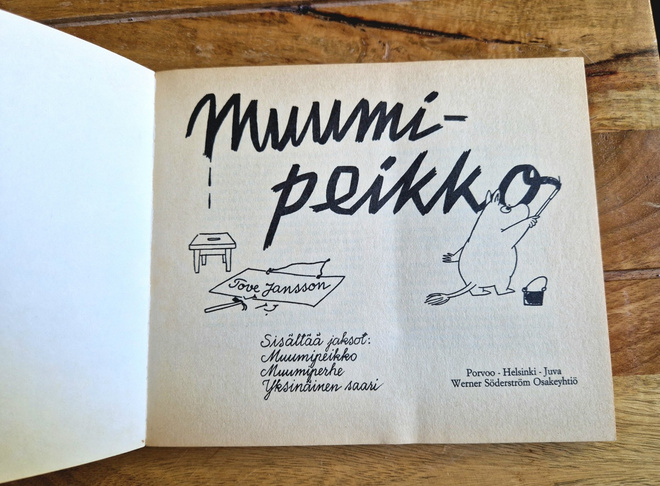 Muumi-
peikko
Tove Jansson
Sisältää jaksot:
Muumipeikko
Muumiperhe
Yksinäinen saari
Porvoo - Helsinki - Juva
Werner Söderström Osakeyhtiö